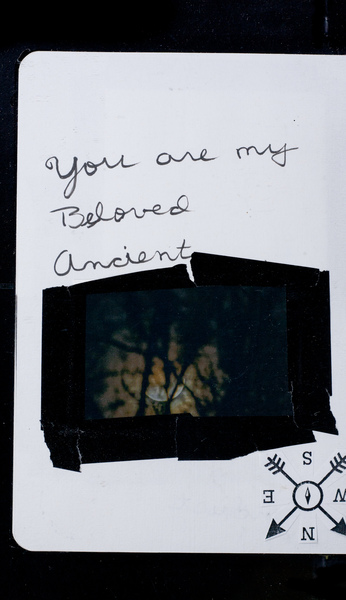 You are my
Beloved
Ancient
S
E W
N